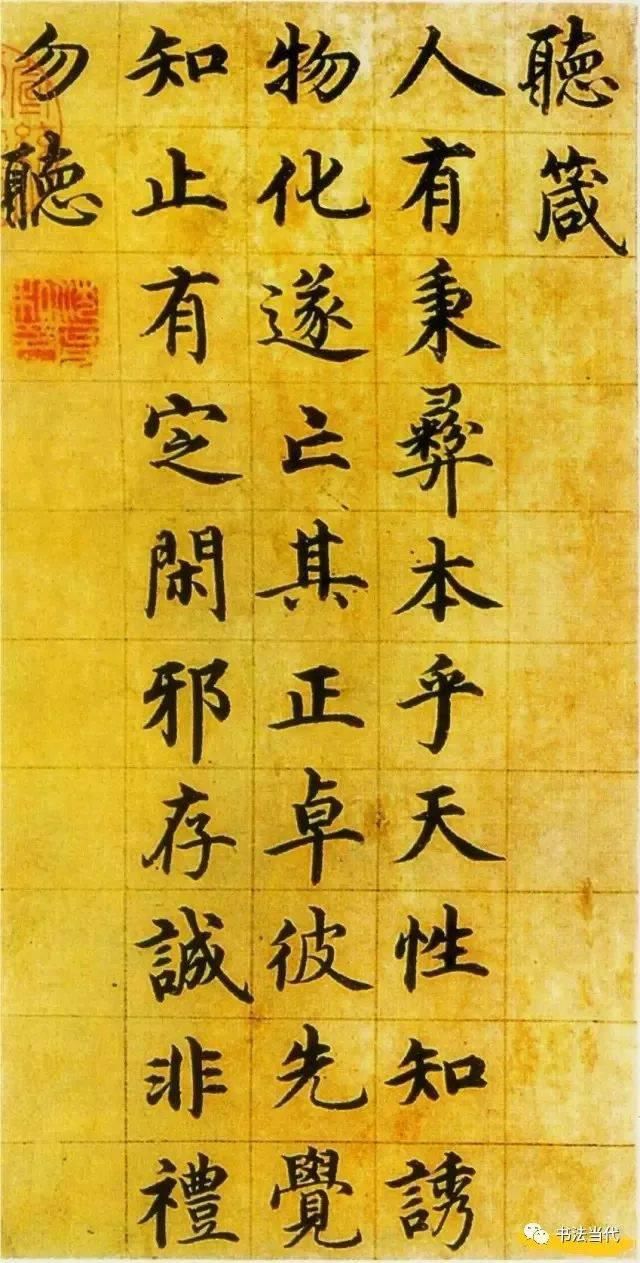 聽箴
人有秉彝本乎天性知誘
物化遂亡其正卓彼先覺
知止有定閑邪存誠非禮
勿聽
书法当代